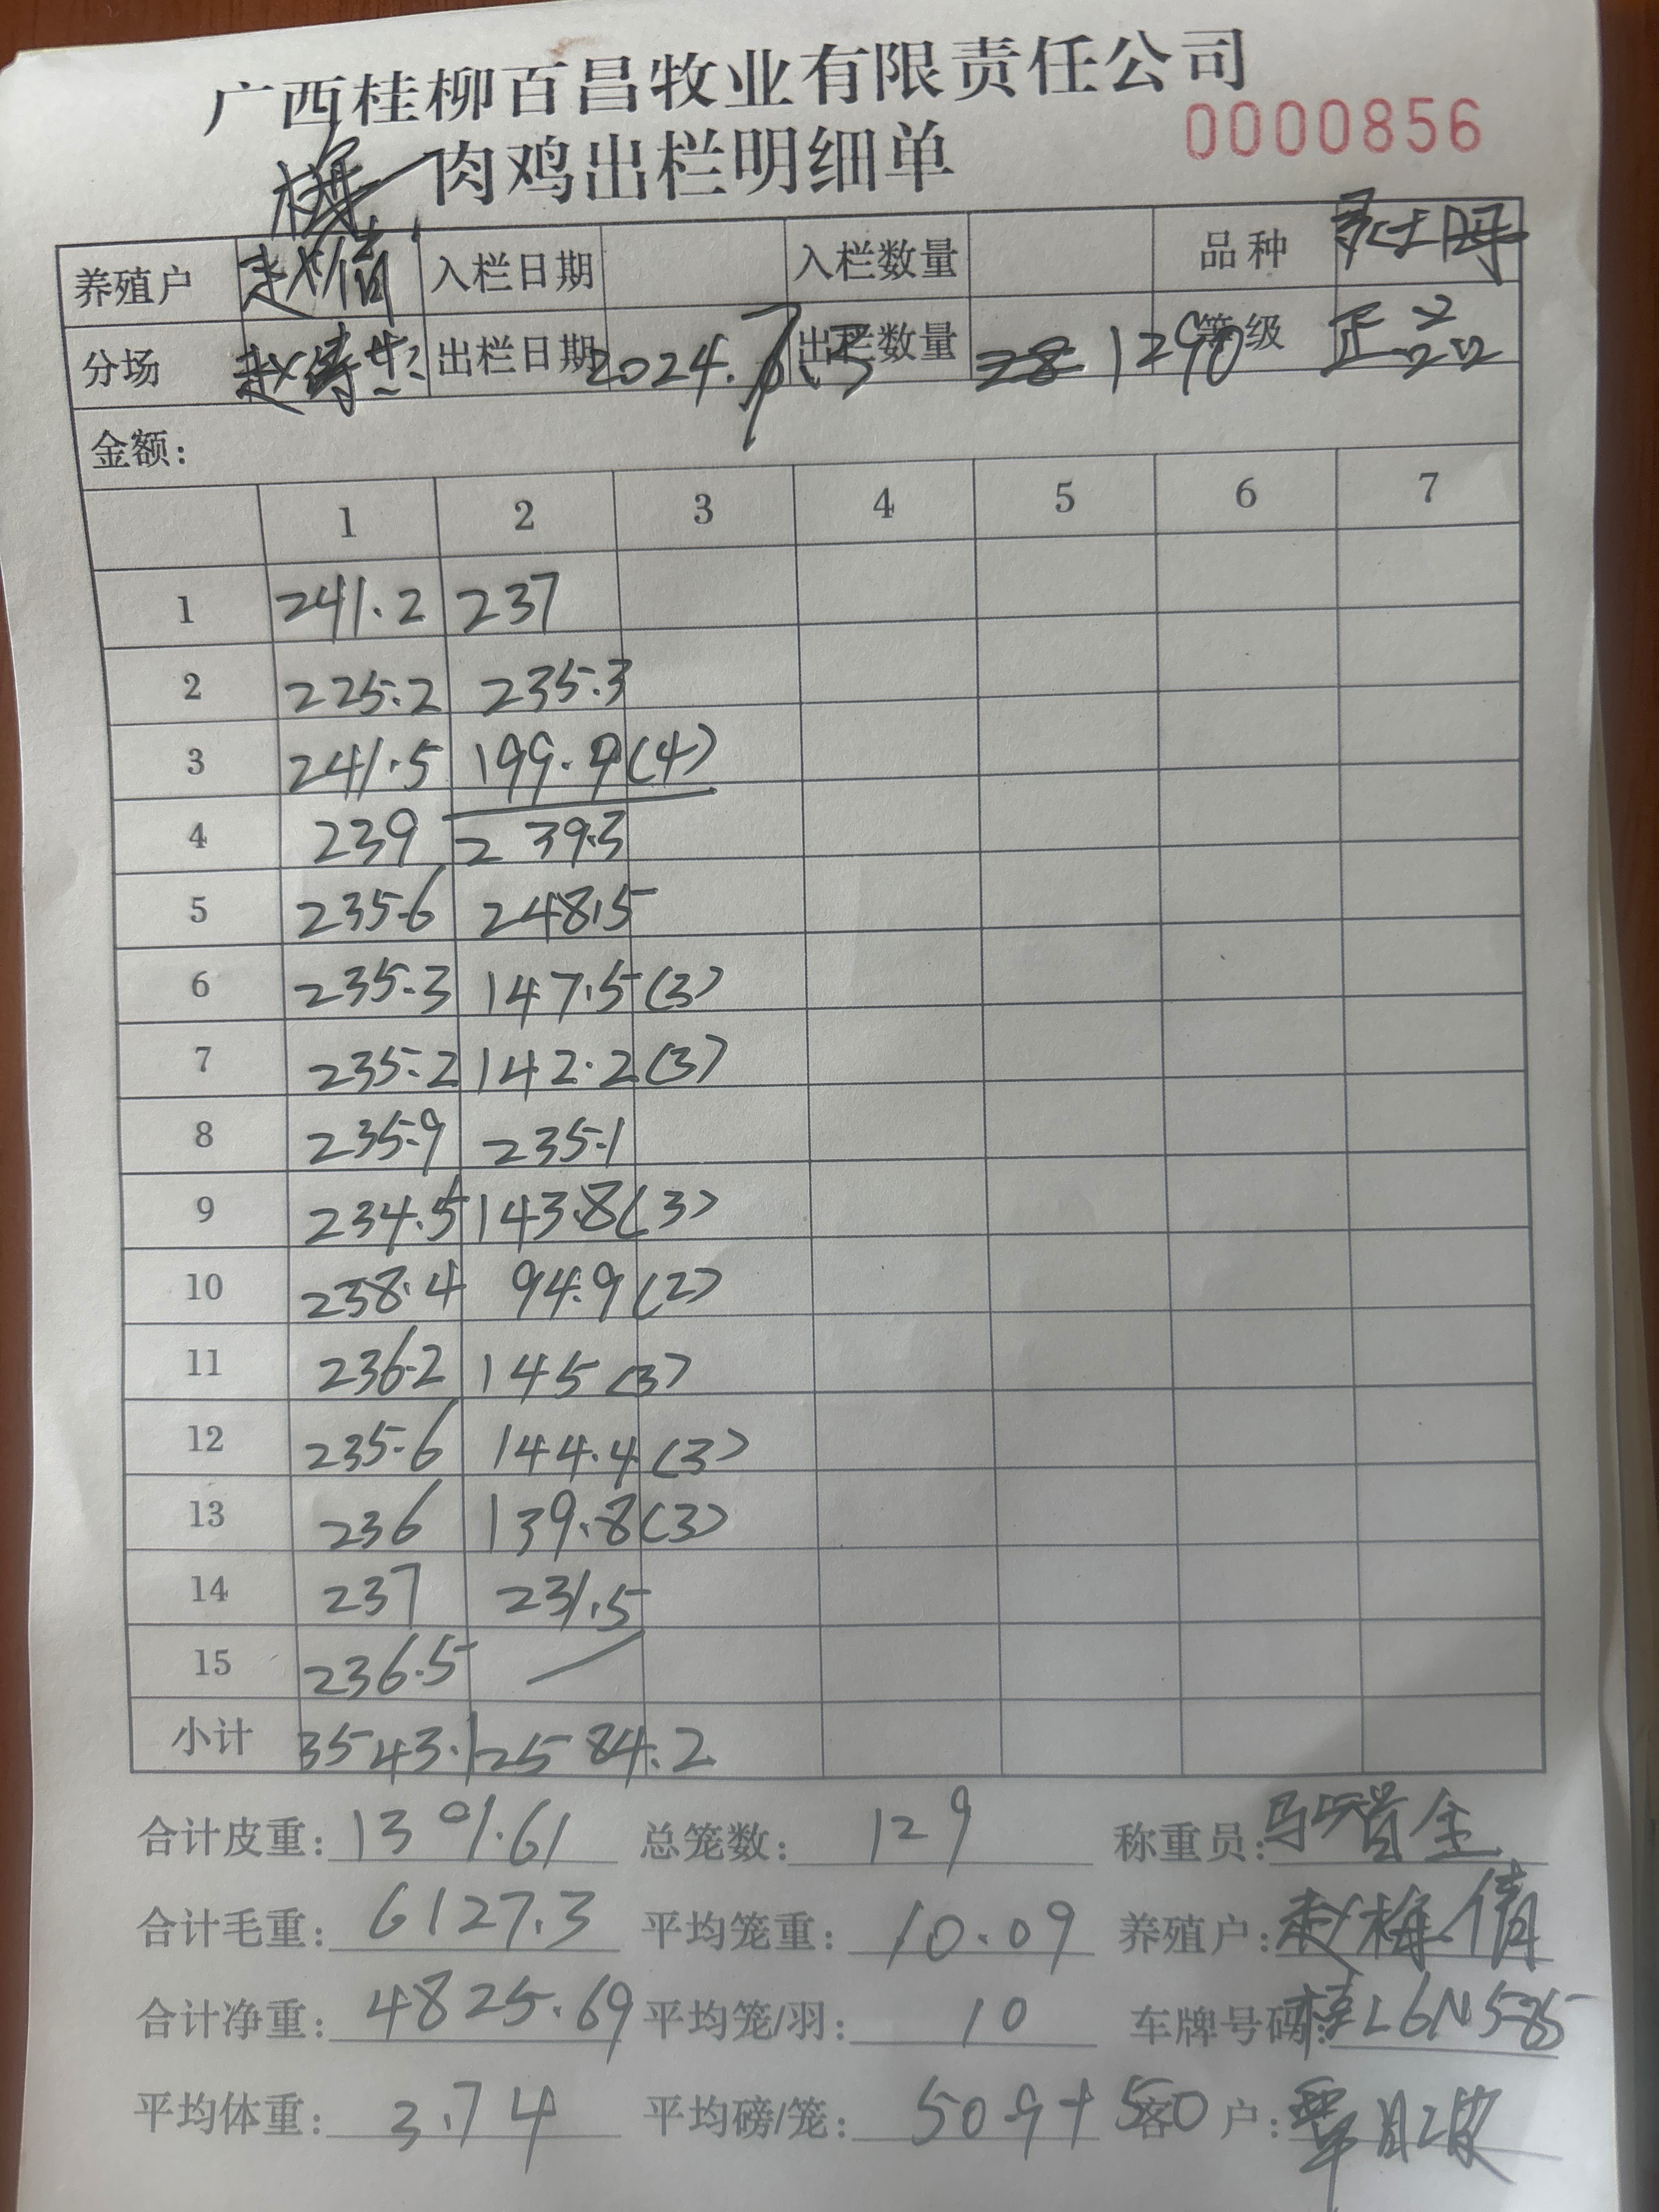 广西桂柳百昌牧业有限责任公司
肉鸡出栏明细单 0000856
梅
养殖户 赵倩 入栏日期 入栏数量 品种
分场 出栏日期 2024.7.3 出栏数量 1290 等级 正品
金额:
1 2 3 4 5 6 7
1 241.2 237
2 225.2 235.3
3 241.5 199.9(4)
4 239 239.3
5 235.6 248.5
6 235.3 147.5(3)
7 235.2 142.2(3)
8 235.9 235.1
9 234.5 143.8(3)
10 238.4 94.9(2)
11 236.2 145(3)
12 235.6 144.4(3)
13 236 139.8(3)
14 237 231.5
15 236.5
小计 3543.1 2584.2
合计皮重: 1301.61 总笼数: 129 称重员:
合计毛重: 6127.3 平均笼重: 10.09 养殖户: 赵梅倩
合计净重: 4825.69 平均笼/羽: 10 车牌号码: 桂L6N585
平均体重: 3.74 平均磅/笼: 509+50 客户: